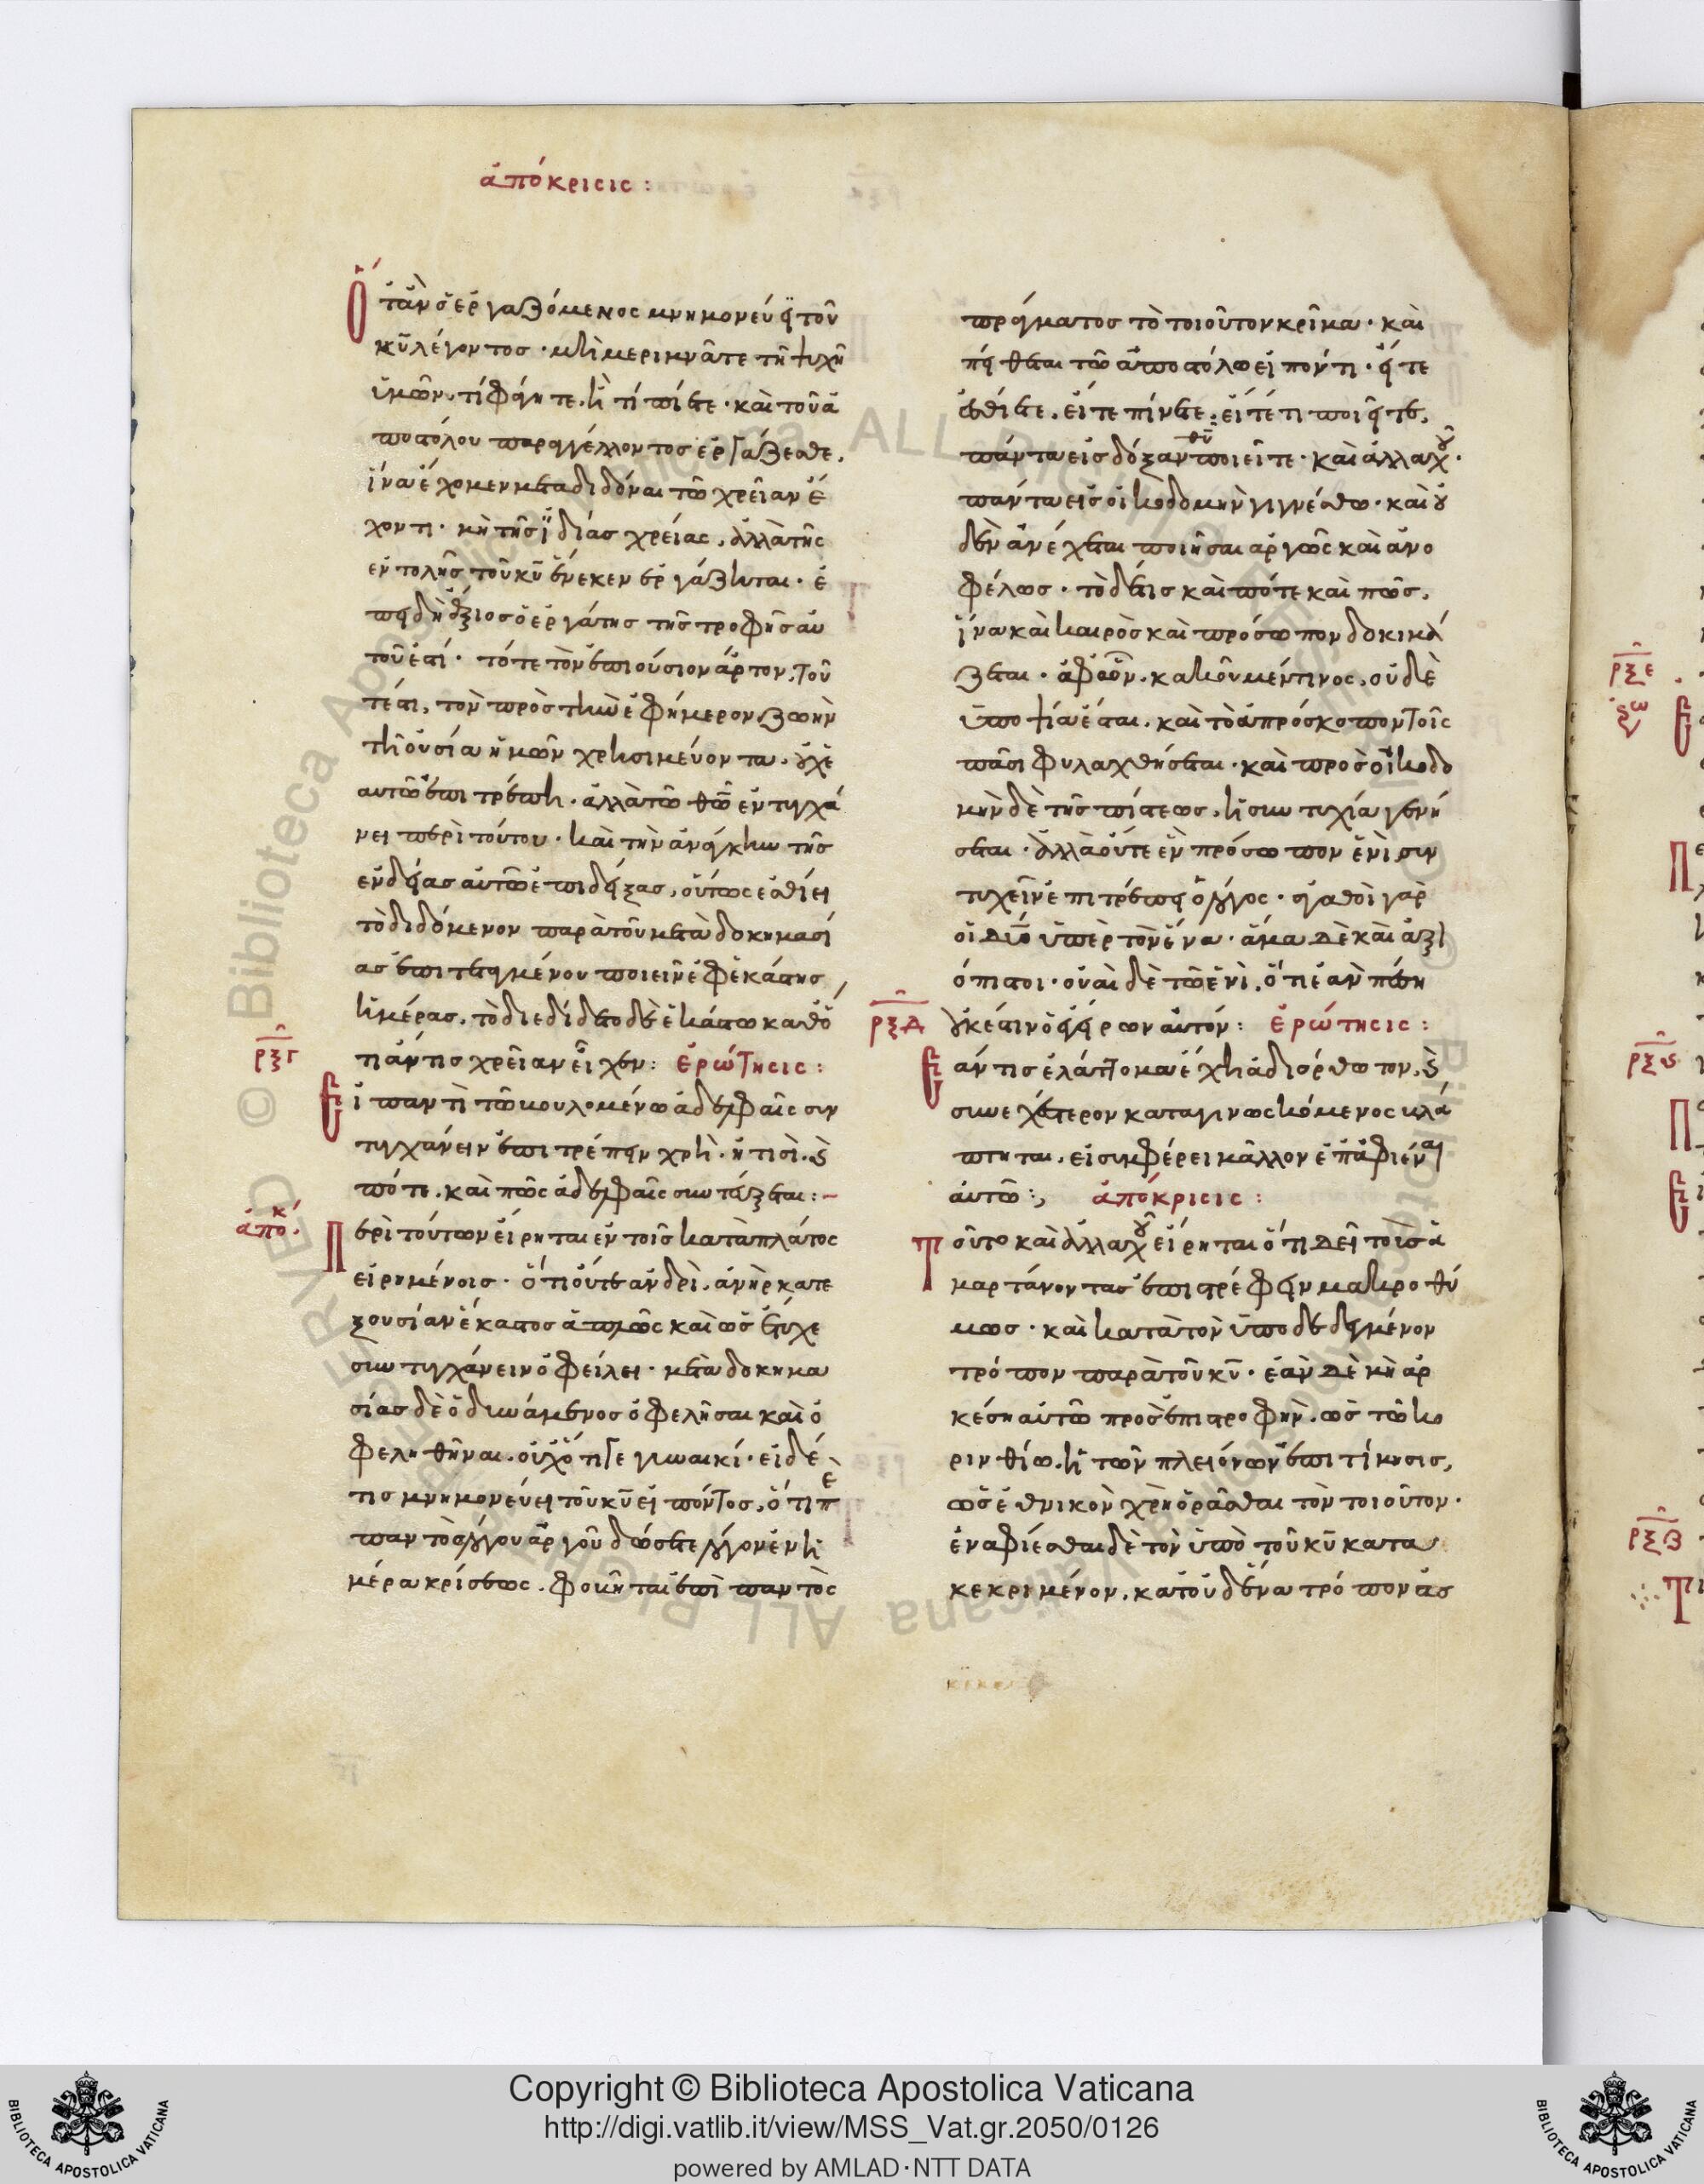 ἀπόκρισις:
Ὅταν ὁ ἐργαζόμενος μνημονεύει τοῦ
κ̅υ̅ λέγοντος· μὴ μεριμνᾶτε τῆ ψυχῆ
ὑμῶν· τί φάγητε. ἢ τί πίετε· καὶ τοῦ ἀ
ποστόλου παραγγέλλοντος ἐργάζεσθε,
ἵνα ἔχομεν μεταδιδόναι τῶ χρείαν ἔ
χοντι· μὴ τῆς ἰδίας χρείας, ἀλλὰ τῆς
ἐντολῆς τοῦ κ̅υ̅ ἕνεκεν ἐργάζηται· ἐ
πειδὴ ἄξιος ὁ ἐργάτης τῆς τροφῆς αὐ
τοῦ ἐστί· τότε τὸν ἐπιούσιον ἄρτον, τοῦ
τέστι, τὸν πρὸς τὴν ἐφήμερον ζωὴν
τῆ οὐσία ἡμῶν χρησιμεύοντα. οὐχ ἑ
αυτῶ ἐπιτρέπει· ἀλλὰ τῶ θ̅ῶ̅ ἐντυγχά
νει περὶ τούτου· καὶ τὴν ἀνάγκην τῆς
ἐνδείας αὐτῶ ἐπιδείξας, οὕτως ἐσθίει
τὸ διδόμενον παρὰ τοῦ μετὰ δοκημασί
ας ἐπιτεταγμένου ποιεῖν ἐφ' ἑκάστης
ἡμέρας, τὸ διεδίδετο δὲ ἑκάστω καθό
τι ἄν τις χρείαν εἶχεν: ἐρώτησις:
ρξγ
Εἰ παντὶ τῶ βουλομένω ἀδελφαῖς συν
τυγχάνειν ἐπιτρέπειν χρὴ· ἢ τισὶ. ἢ
πότε. καὶ πῶς ἀδελφαῖς συντάξεται:
ἀποκ
Περὶ τούτων εἴρηται ἐν τοῖς κατὰ πλάτος
εἰρημένοις· ὅτι οὔτε ἀνδρὶ, ἀνὴρ κατ' ἐ
ξουσίαν ἕκαστος ἁπλῶς καὶ ὡς ἔτυχε
συντυγχάνειν ὀφείλει· μετὰ δοκημα
σίας δὲ ὁ δυνάμενος ὀφελῆσαι καὶ ὀ
φεληθῆναι. οὐχ' ὅτι γε γυναικί· εἰ δέ
τις μνημονεύει τοῦ κ̅υ̅ εἰπόντος, ὅτι περὶ
παντὸς λόγου ἀργοῦ δώσετε λόγον ἐν ἡ
μέρα κρίσεως. φοβῆται ἐπὶ παντὸς
πράγματος τὸ τοιοῦτον κρῖμα· καὶ
πείθεται τῶ ἀποστόλω εἰπόντι· εἴτε
ἐσθίετε. εἴτε πίνετε. εἴτε τι ποιεῖτε,
πάντα εἰς δόξαν θ̅υ̅ ποιεῖτε· καὶ ἀλλαχοῦ·
πάντα εἰς οἰκοδομὴν γιγνέσθω· καὶ οὐ
δὲν ἀνέχεται ποιῆσαι ἀργῶς καὶ ἀνο
φέλως· τὸ δὲ τίς καὶ πότε καὶ πῶς,
ἵνα καὶ καιρὸς καὶ πρόσωπον δοκιμά
ζεται· ἀφ' ὧν. κακοῦ μέν τινος, οὐδὲ
ὑποψία ἔσται. καὶ τὸ ἀπρόσκοπον τοῖς
πᾶσι φυλαχθήσεται· καὶ πρὸς οἰκοδο
μὴν δὲ τῆς πίστεως, ἡ συντυχία γενή
σεται· ἀλλὰ οὔτε ἓν πρόσωπον ἑνὶ συν
τυχεῖν ἐπιτρέπει ὁ λόγος· ἀγαθοὶ γὰρ
οἱ δύο ὑπὲρ τὸν ἕνα· ἅμα δὲ καὶ ἀξι
όπιστοι· οὐαὶ δὲ τῶ ἑνὶ, ὅτι ἐὰν πέση
οὐκ ἔστιν ὁ ἐγείρων αὐτόν: ἐρώτησις:
ρξδ
Ἐάν τις ἐλάττομα ἔχει ἀδιόρθωτον. ἢ
συνεχέστερον καταγινωσκόμενος βλά
πτηται. εἰ συμφέρει μᾶλλον ἐπαφιέναι
αὐτῶ: ἀπόκρισις:
Τοῦτο καὶ ἀλλαχοῦ εἴρηται ὅτι δεῖ τοὺς ἁ
μαρτάνοντας ἐπιστρέφειν μακροθύ
μως· καὶ κατὰ τὸν ὑποδεδειγμένον
τρόπον παρὰ τοῦ κ̅υ̅· ἐὰν δὲ μὴ ἀρ
κέση αὐτῶ πρὸς ἐπιστροφὴν, ὡς τῶ κο
ρινθίω, ἡ τῶν πλειόνων ἐπιτίμησις,
ὡς ἐθνικὸν χρὴ ὁρᾶσθαι τὸν τοιοῦτον·
ἐναφιέσθαι δὲ τὸν ὑπὸ τοῦ κ̅υ̅ κατα
κεκριμένον, κατ' οὐδένα τρόπον ἀσ
ρξε
ρξς
ρξβ
© Biblioteca Apostolica Vaticana ALL DIGITAL RIGHTS RESERVED
Copyright © Biblioteca Apostolica Vaticana
http://digi.vatlib.it/view/MSS_Vat.gr.2050/0126
powered by AMLAD·NTT DATA
BIBLIOTECA APOSTOLICA VATICANA
BIBLIOTECA APOSTOLICA VATICANA